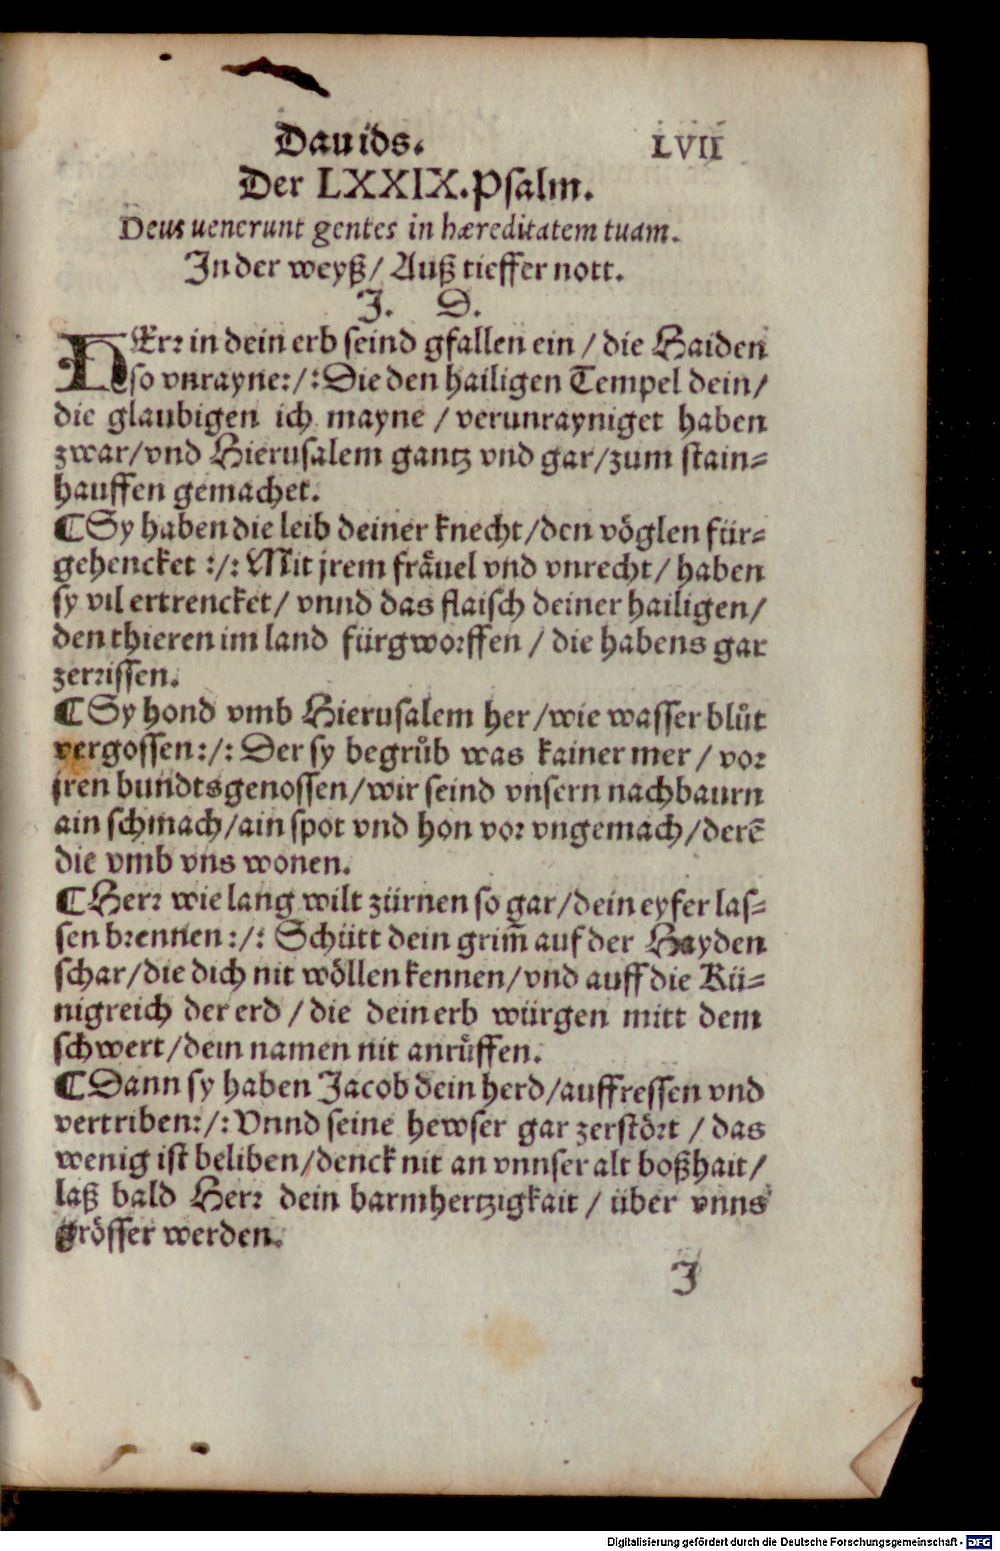 Dauids. LVII
Der LXXIX. Psalm.
Deus uenerunt gentes in hæreditatem tuam.
In der weyß / Auß tieffer nott.
J. D.
HErr in dein erb seind gfallen ein / die Haiden
so vnrayne:/: Die den hailigen Tempel dein /
die glaubigen ich mayne / verunrayniget haben
zwar / vnd Hierusalem gantz vnd gar / zum stain=
hauffen gemachet.
¶ Sy haben die leib deiner knecht / den vöglen für=
gehencket :/: Mit jrem fråuel vnd vnrecht / haben
sy vil ertrencket / vnnd das flaisch deiner hailigen /
den thieren im land fürgworffen / die habens gar
zerrissen.
¶ Sy hond vmb Hierusalem her / wie wasser blůt
vergossen:/: Der sy begrůb was kainer mer / vor
jren bundtsgenossen / wir seind vnsern nachbaurn
ain schmach / ain spot vnd hon vor vngemach / derē
die vmb vns wonen.
¶ Herr wie lang wilt zürnen so gar / dein eyfer las=
sen brennen:/: Schütt dein grim̄ auf der Hayden
schar / die dich nit wöllen kennen / vnd auff die Kü=
nigreich der erd / die dein erb würgen mitt dem
schwert / dein namen nit anrůffen.
¶ Dann sy haben Jacob dein herd / auffressen vnd
vertriben:/: Vnnd seine hewser gar zerstört / das
wenig ist beliben / denck nit an vnnser alt boßhait /
laß bald Herr dein barmhertzigkait / über vnns
grösser werden.
J
Digitalisierung gefördert durch die Deutsche Forschungsgemeinschaft - DFG